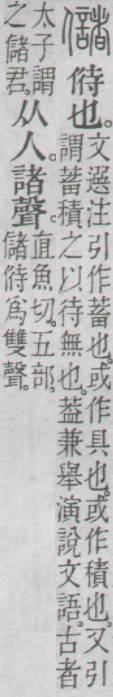 儲 偫也。文選注引作蓄也。或作具也。或作積也。又引
謂蓄積之以待無也。葢兼舉演說文語。古者
太子謂
之儲君。从人。諸聲。直魚切。五部。
儲偫爲雙聲。